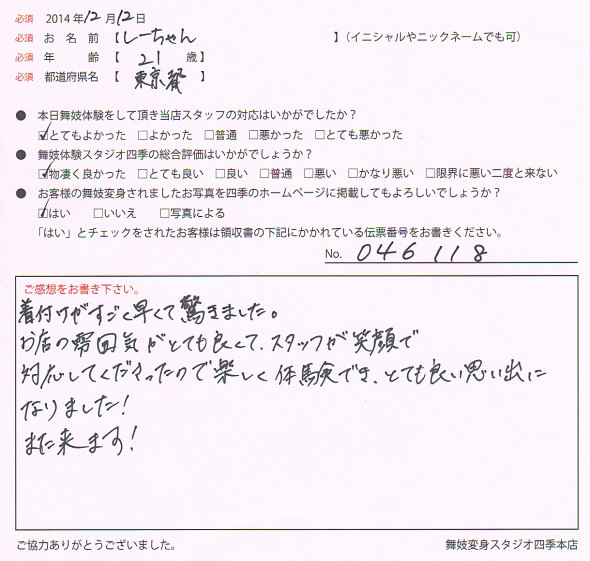 必須 2014年12月12日
必須 お名前【しーちゃん】(イニシャルやニックネームでも可)
必須 年齢【21歳】
必須 都道府県名【東京都】
● 本日舞妓体験をして頂き当店スタッフの対応はいかがでしたか?
☑とてもよかった □よかった □普通 □悪かった □とても悪かった
● 舞妓体験スタジオ四季の総合評価はいかがでしょうか?
☑物凄く良かった □とても良い □良い □普通 □悪い □かなり悪い □限界に悪い二度と来ない
● お客様の舞妓変身されましたお写真を四季のホームページに掲載してもよろしいでしょうか?
☑はい □いいえ □写真による
「はい」とチェックをされたお客様は領収書の下記にかかれている伝票番号をお書きください。
No. 046118
ご感想をお書き下さい。
着付けがすごく早くて驚きました。
お店の雰囲気がとても良くて、スタッフが笑顔で
対応してくださったので楽しく体験でき、とても良い思い出に
なりました!
また来ます!
ご協力ありがとうございました。
舞妓変身スタジオ四季本店